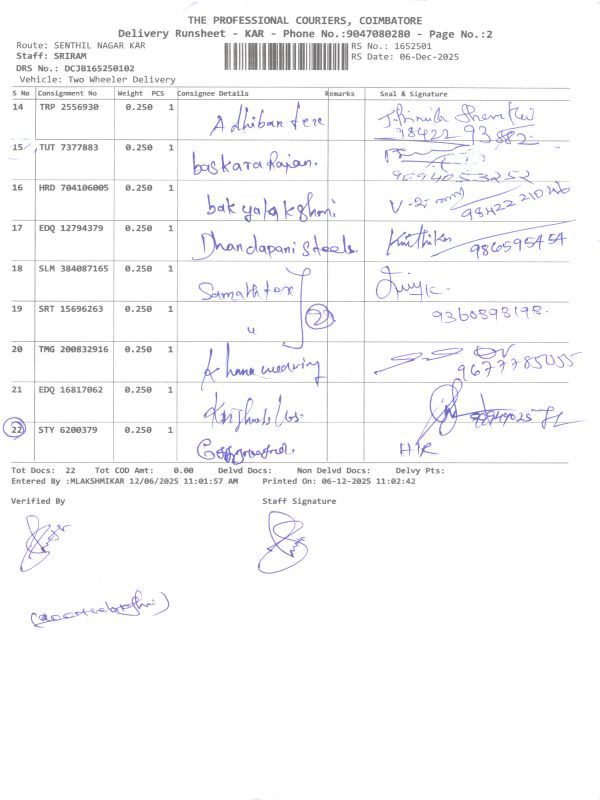 THE PROFESSIONAL COURIERS, COIMBATORE
Delivery Runsheet - KAR - Phone No.:9047080280 - Page No.:2
Route: SENTHIL NAGAR KAR RS No.: 1652501
Staff: SRIRAM RS Date: 06-Dec-2025
DRS No.: DCJB165250102
Vehicle: Two Wheeler Delivery
S No Consignment No Weight PCS Consignee Details Remarks Seal & Signature
14 TRP 2556930 0.250 1 Adhiban tex
98422 93882
15 TUT 7377883 0.250 1 baskara Rajan.
9694053252
16 HRD 704106005 0.250 1 bakyalakshmi
17 EDQ 12794379 0.250 1 Dhandapani Steels. Kiruthika
986595454
18 SLM 384087165 0.250 1
19 SRT 15696263 0.250 1 " 2 9360898198.
20 TMG 200832916 0.250 1
21 EDQ 16817062 0.250 1
22 STY 6200379 0.250 1
Tot Docs: 22 Tot COD Amt: 0.00 Delvd Docs: Non Delvd Docs: Delvy Pts:
Entered By :MLAKSHMIKAR 12/06/2025 11:01:57 AM Printed On: 06-12-2025 11:02:42
Verified By Staff Signature